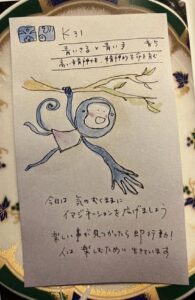 K31
青いさると青い手 音5
高い精神性を
今日は 気のむくままに
イマジネーションを広げましょう
楽しい事が見つかったら即行動!
人は楽しむために生きています